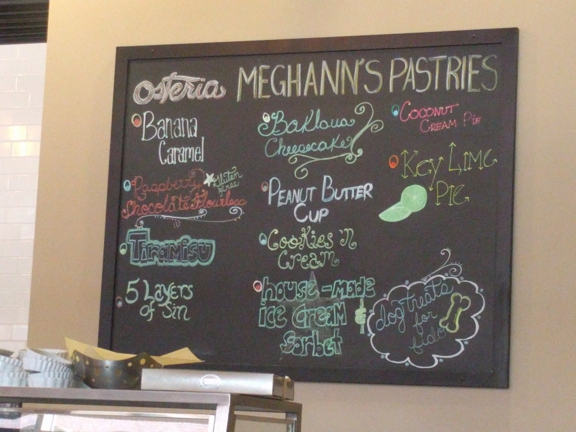 Osteria MEGHANN'S PASTRIES
Banana
Caramel
Raspberry
Gluten
Free
Chocolate Flourless
Tiramisu
5 Layers
of Sin
Baklava
Cheesecake
PEANUT BUTTER
CUP
Cookies 'n
Cream
house-made
ice cream
sorbet
COCONUT
CREAM PIE
KEY LIME
PIE
dog treats
for